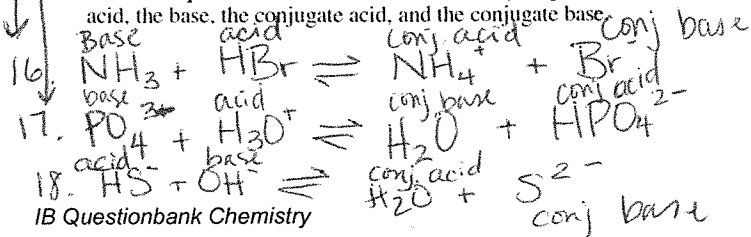 acid, the base, the conjugate acid, and the conjugate base.
Base acid conj. acid conj base
16. NH₃ + HBr ⇌ NH₄⁺ + Br⁻
base acid conj base conj acid
17. PO₄³⁻ + H₃O⁺ ⇌ H₂O + HPO₄²⁻
acid base conj. acid
18. HS⁻ + OH⁻ ⇌ H₂O + S²⁻
conj base
IB Questionbank Chemistry